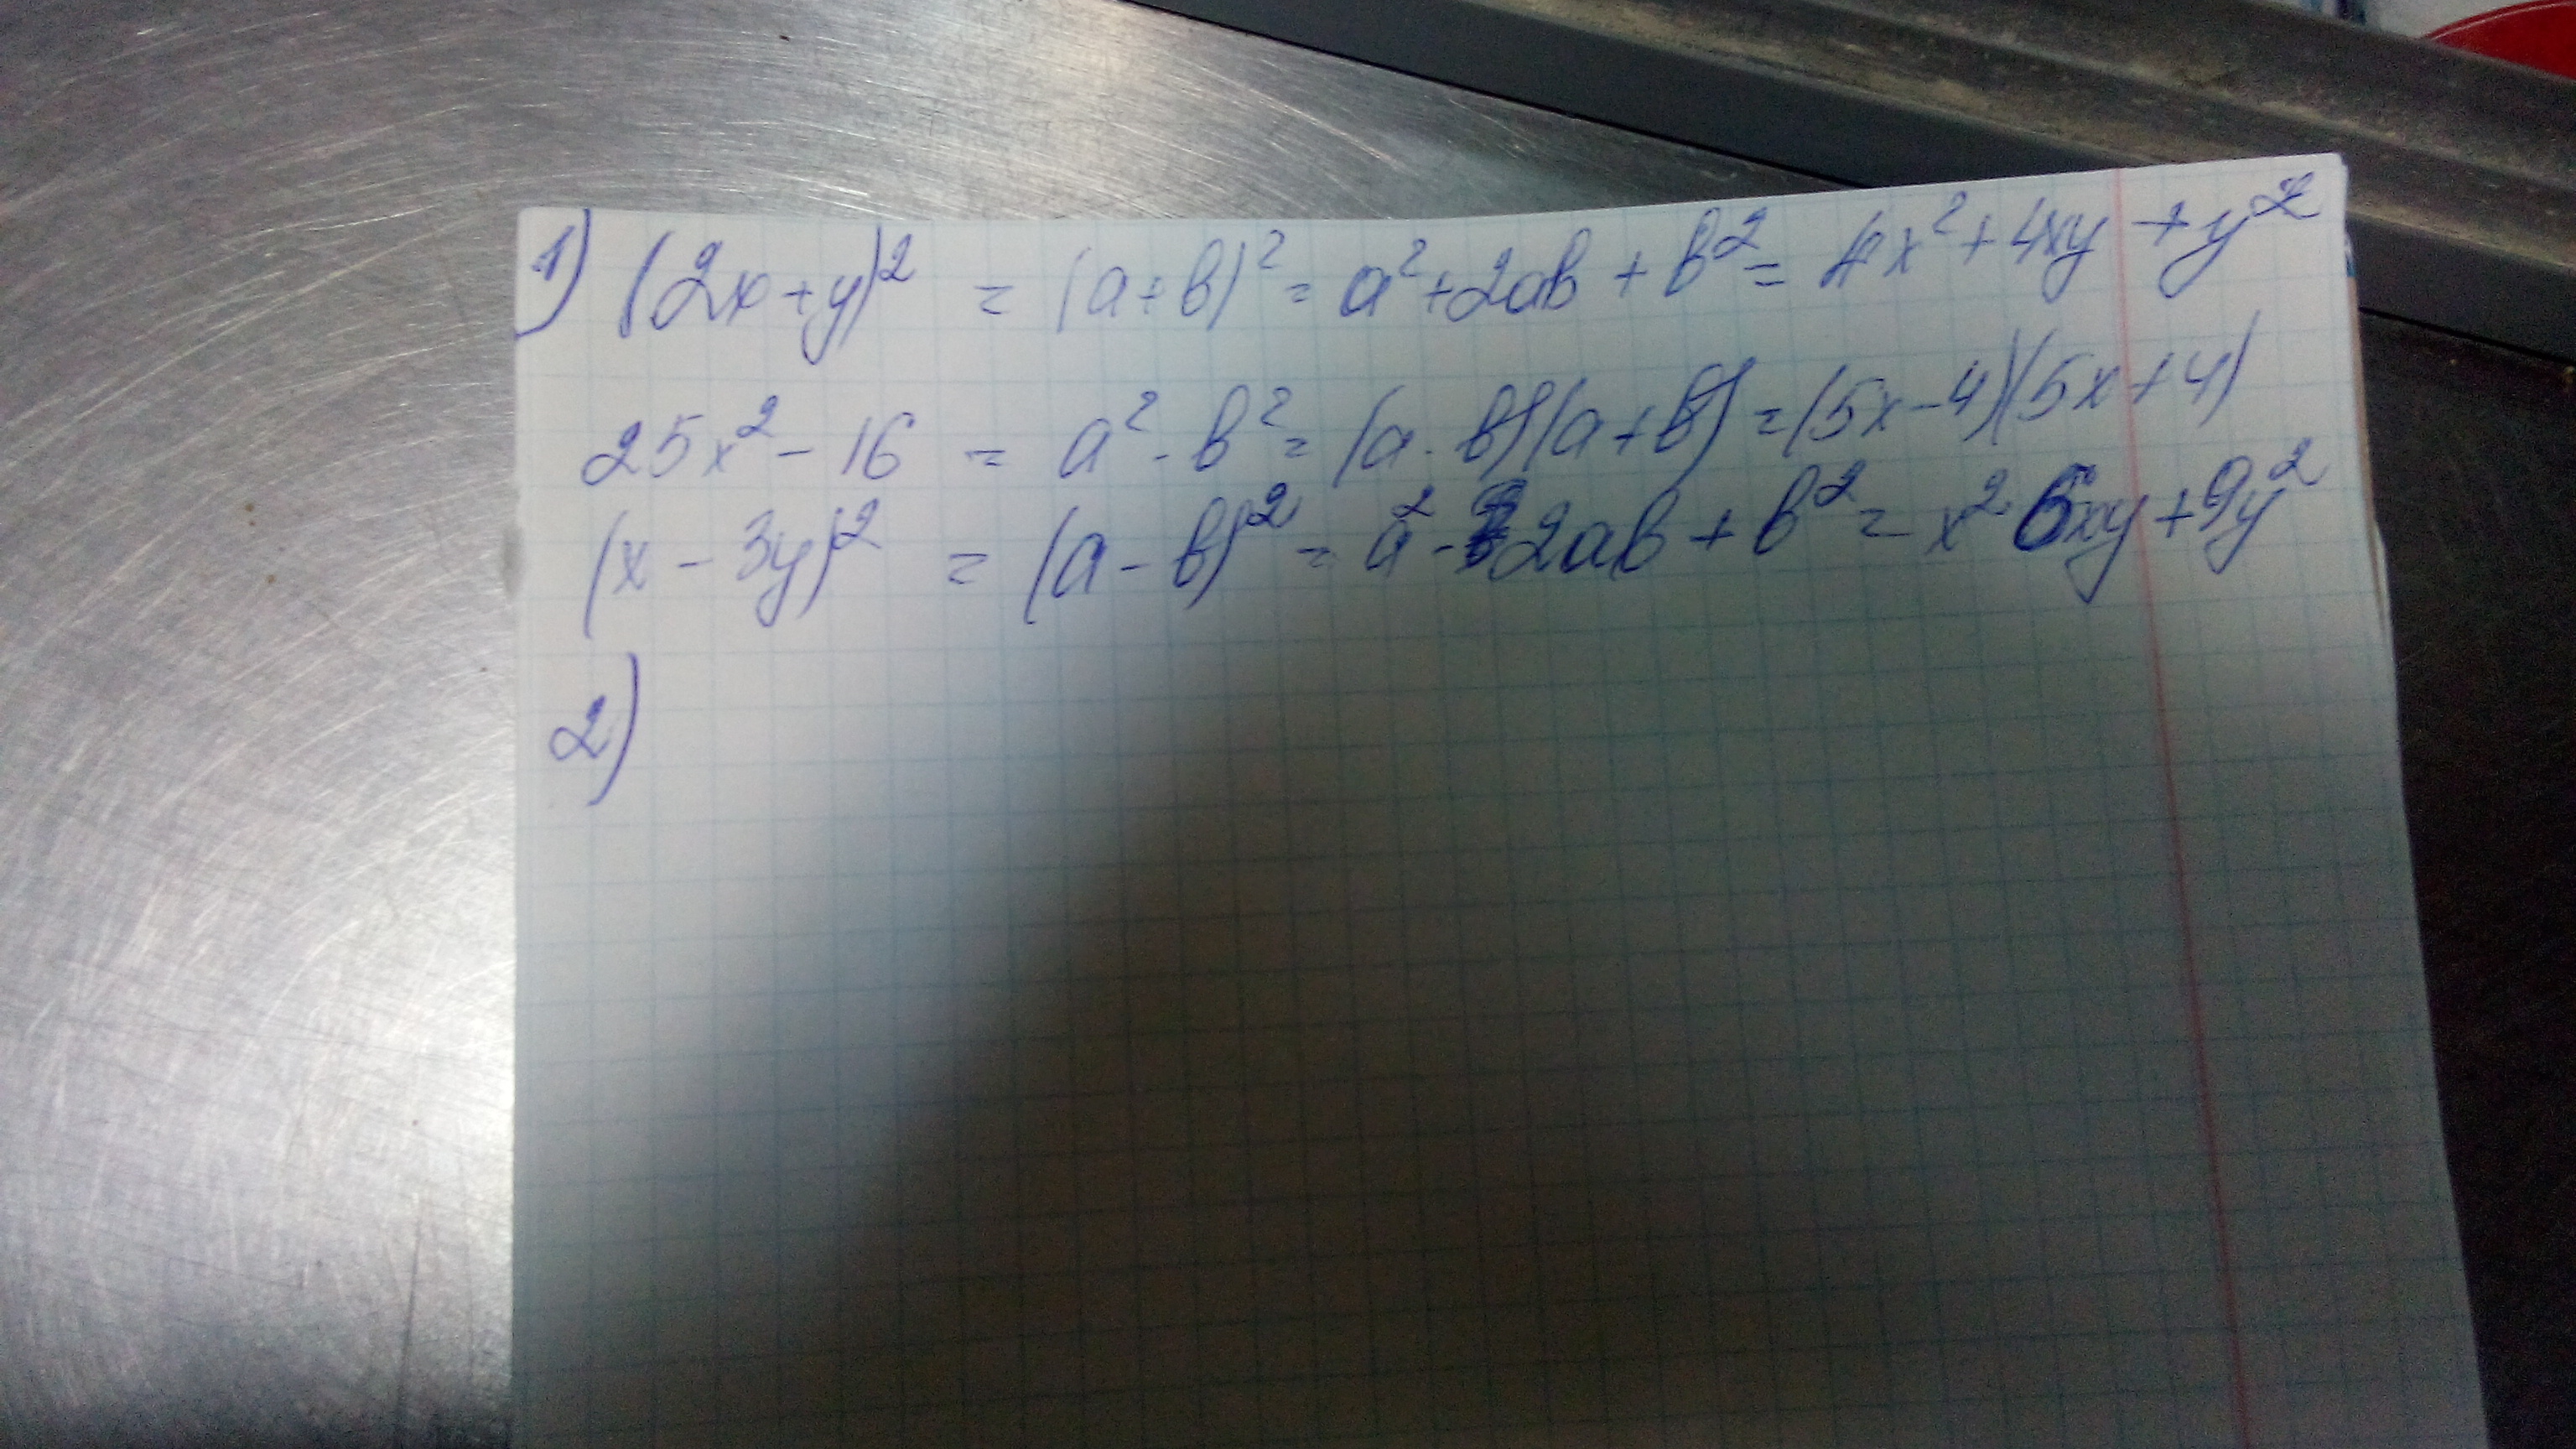 1) (2x+y)² = (a+b)² = a²+2ab+b² = 4x²+4xy+y²
25x²-16 = a²-b² = (a-b)(a+b) = (5x-4)(5x+4)
(x-3y)² = (a-b)² = a²-2ab+b² = x² 6xy+9y²
2)